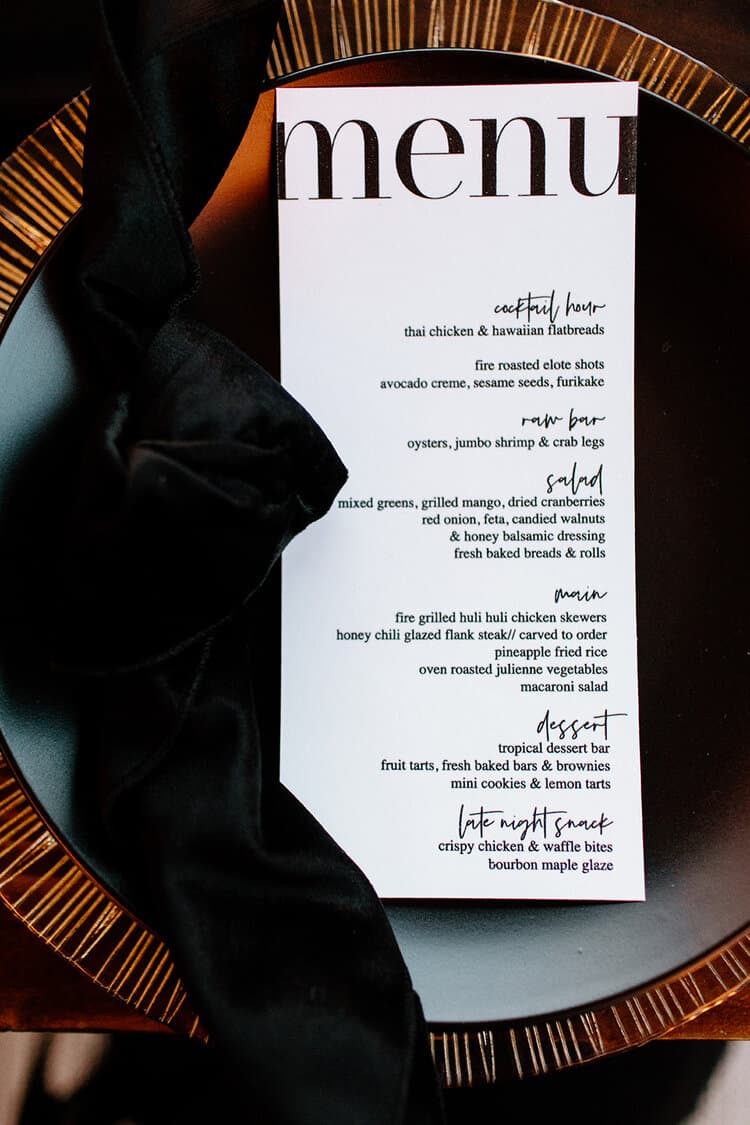 menu
cocktail hour
thai chicken & hawaiian flatbreads
fire roasted elote shots
avocado creme, sesame seeds, furikake
raw bar
oysters, jumbo shrimp & crab legs
salad
mixed greens, grilled mango, dried cranberries
red onion, feta, candied walnuts
& honey balsamic dressing
fresh baked breads & rolls
main
fire grilled huli huli chicken skewers
honey chili glazed flank steak// carved to order
pineapple fried rice
oven roasted julienne vegetables
macaroni salad
dessert
tropical dessert bar
fruit tarts, fresh baked bars & brownies
mini cookies & lemon tarts
late night snack
crispy chicken & waffle bites
bourbon maple glaze